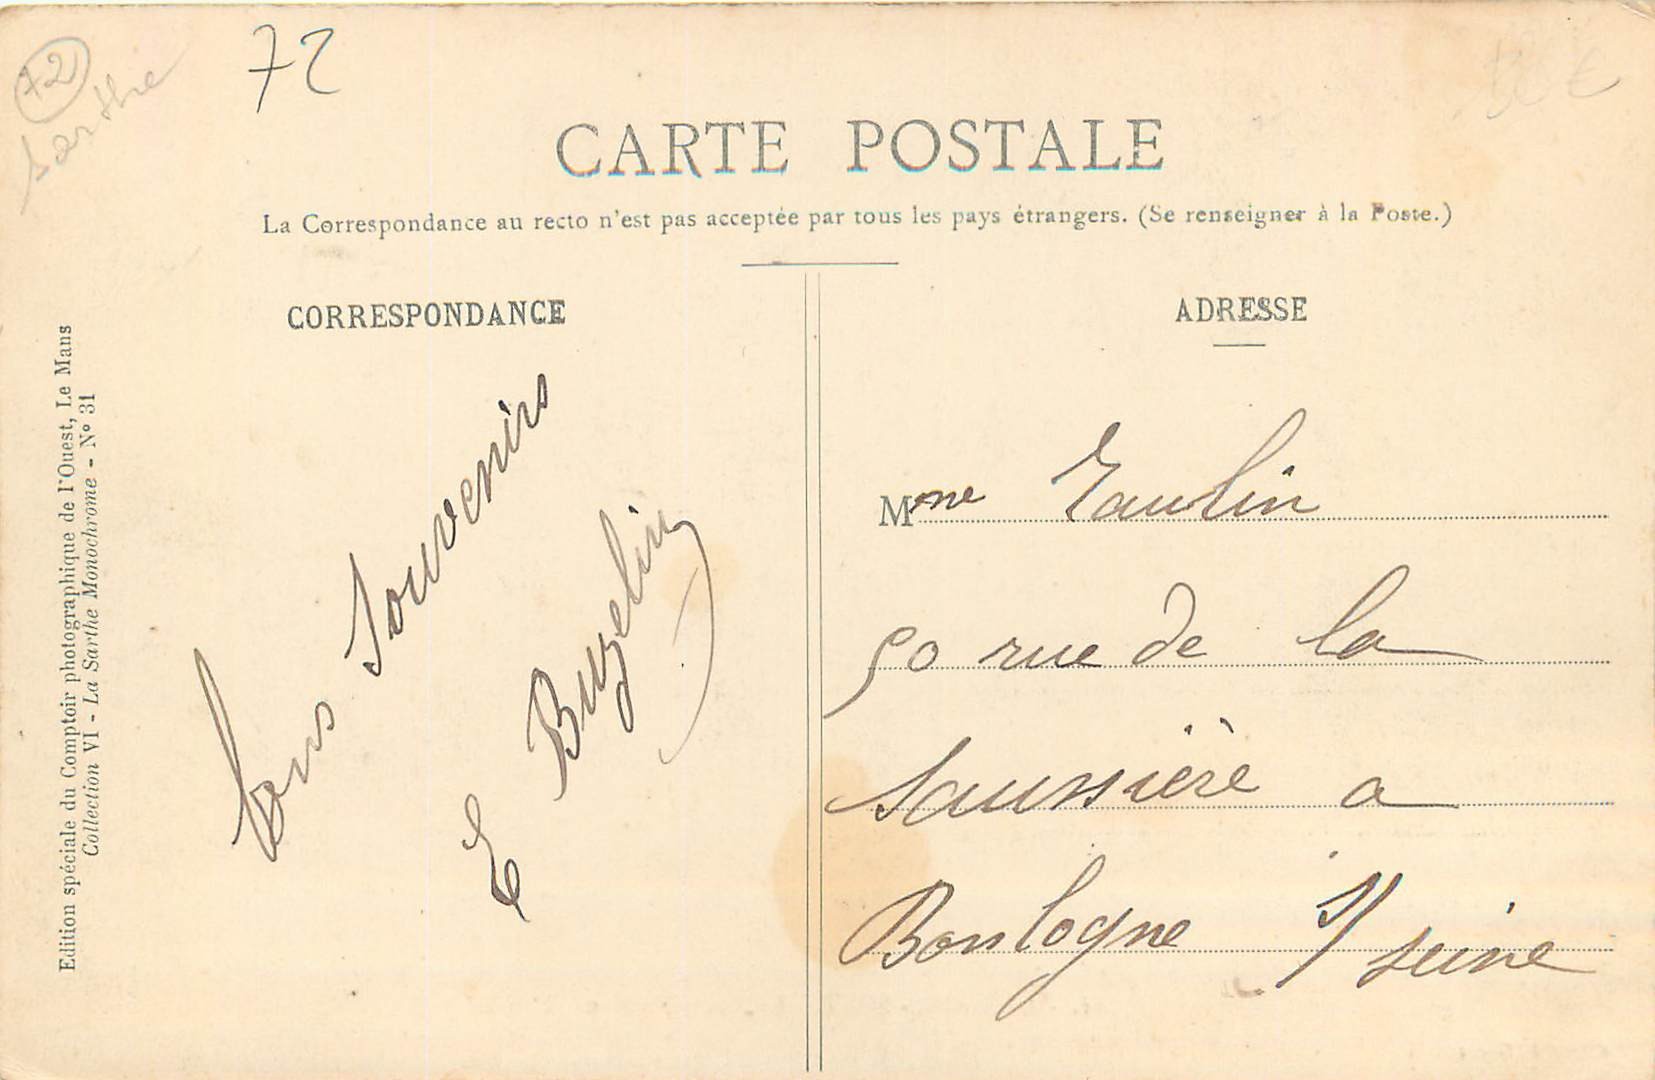 72
Sarthe
72
CARTE POSTALE
La Correspondance au recto n'est pas acceptée par tous les pays étrangers. (Se renseigner à la Poste.)
CORRESPONDANCE
Edition spéciale du Comptoir photographique de l'Ouest, Le Mans
Collection VI - La Sarthe Monochrome - N° 31
bons Souvenirs
E Buzelin
ADRESSE
Mme Taulin
50 rue de la
Saussière a
Boulogne s/ seine